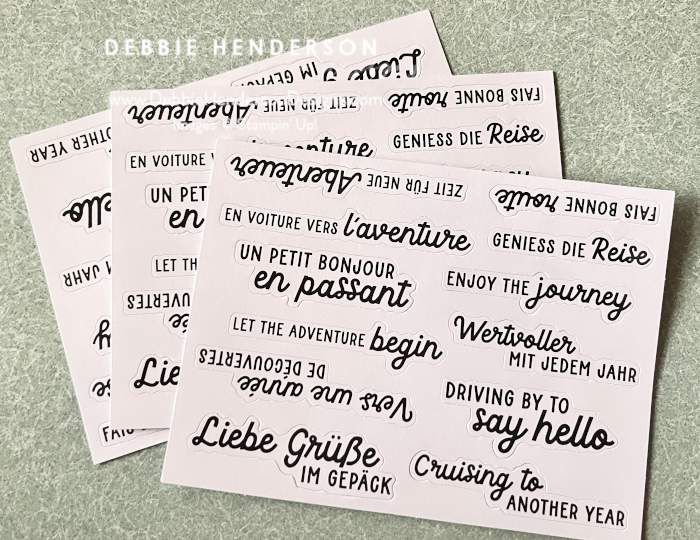 DEBBIE HENDERSON
Images © Stampin' Up!
IM GEPÄCK
Liebe
OTHER YEAR
ello
JAHR
ZEIT FÜR NEUE Abenteuer
FAIS BONNE route
EN VOITURE
GENIESS DIE Reise
UN PETIT
en
LET TH
DÉCOUVERTES
Lie
FAIS
ZEIT FÜR NEUE Abenteuer
FAIS BONNE route
EN VOITURE VERS l'aventure
GENIESS DIE Reise
UN PETIT BONJOUR
en passant
ENJOY THE journey
LET THE ADVENTURE begin
Wertvoller
MIT JEDEM JAHR
Vers une année
DE DÉCOUVERTES
DRIVING BY TO
say hello
Liebe Grüße
IM GEPÄCK
Cruising to
ANOTHER YEAR